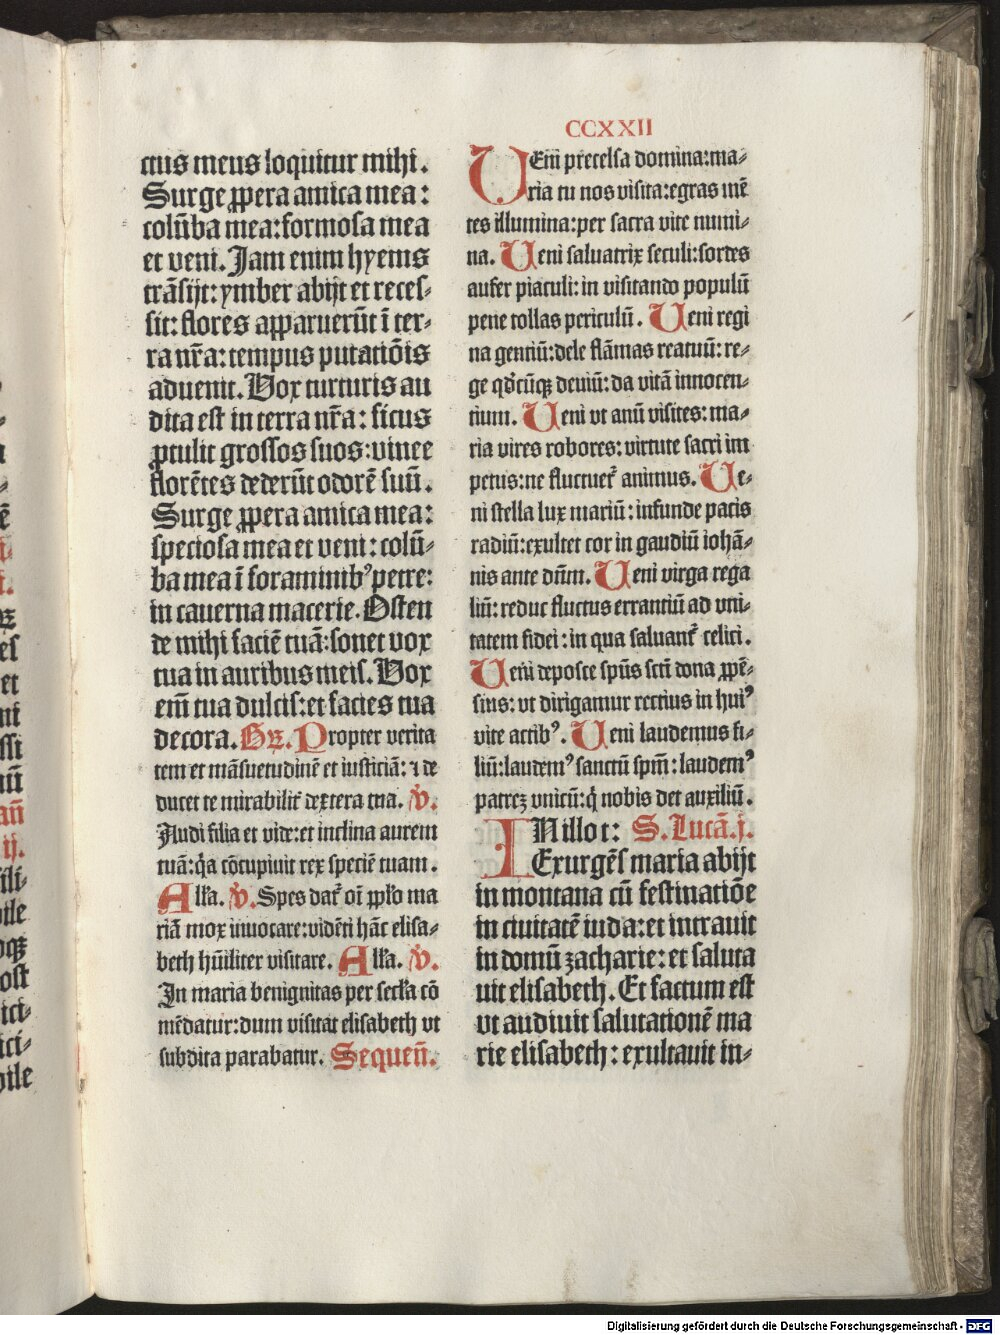 CCXXII
ctus meus loquitur mihi.
Surge ꝓpera amica mea:
colūba mea: formosa mea
et veni. Jam enim hyems
trāsijt: ymber abijt et reces-
sit: flores apparuerūt ī ter-
ra nr̄a: tempus putatiōis
aduenit. Vox turturis au
dita est in terra nr̄a: ficus
ꝓtulit grossos suos: vinee
florētes dederūt odorē suū.
Surge ꝓpera amica mea:
speciosa mea et veni: colū-
ba mea ī foraminibꝰ petre:
in cauerna macerie. Osten
de mihi faciē tuā: sonet vox
tua in auribus meis. Vox
em̄ tua dulcis: et facies tua
decora. Gꝛ. Propter verita
tem et māsuetudinē et iusticiā: ⁊ de
ducet te mirabilit̄ dextera tua. v̄.
Audi filia et vide: et inclina aurem
tuā: q̄a cōcupiuit rex speciē tuam.
All'a. v̄. Spes dat̄ oī pplo ma
riā mox inuocare: vidēti hāc elisa-
beth hūiliter visitare. All'a. v̄.
In maria benignitas per secl'a cō
mēdatur: dum visitat elisabeth vt
subdita parabatur. Sequen̄.
VEni precelsa domina: ma-
ria tu nos visita: egras mē
tes illumina: per sacra vite numi-
na. Veni saluatrix seculi: sordes
aufer piaculi: in visitando populū
pene tollas periculū. Veni regi
na gentiū: dele flāmas reatuū: re-
ge qd̄cūqꝫ deuiū: da vitā innocen-
tium. Veni vt anū visites: ma-
ria vires robores: virtute sacri im
petus: ne fluctuet̄ animus. Ve-
ni stella lux mariū: infunde pacis
radiū: exultet cor in gaudiū iohā-
nis ante dn̄m. Veni virga rega
liū: reduc fluctus errantiū ad vni-
tatem fidei: in qua saluant̄ celici.
Veni deposce spūs scti dona ꝓpē-
sius: vt dirigamur rectius in huiꝰ
vite actibꝰ. Veni laudemus fi-
liū: laudemꝰ sanctū spm̄: laudemꝰ
patreꝫ vnicū: q̄ nobis det auxiliū.
IN illo t: S. Lucā. j.
Exurgēs maria abijt
in montana cū festinatiōe
in ciuitatē iuda: et intrauit
in domū zacharie: et saluta
uit elisabeth. Et factum est
vt audiuit salutationē ma
rie elisabeth: exultauit in-
Digitalisierung gefördert durch die Deutsche Forschungsgemeinschaft - DFG